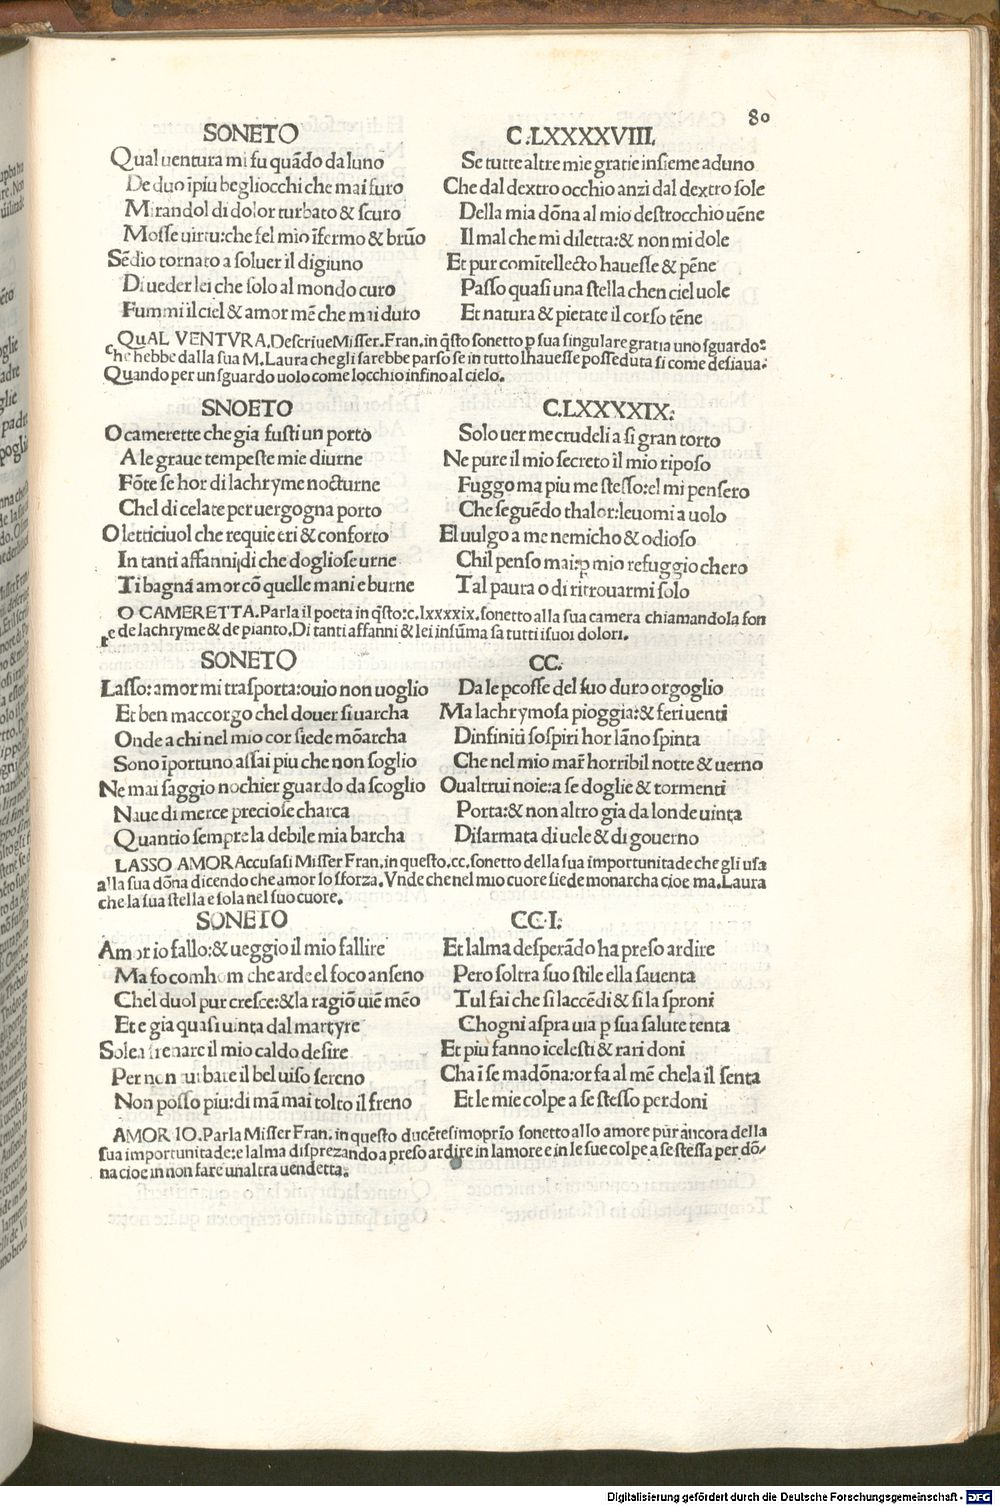 80
SONETO C.LXXXXVIII.
Qual uentura mi fu quãdo da luno
De duo ĩpiu begliocchi che mai furo
Mirandol di dolor turbato & ſcuro
Moſſe uirtu:che fel mio ĩfermo & brũo
Sẽdio tornato a ſoluer il digiuno
Di ueder lei che ſolo al mondo curo
Fummi il ciel & amor mẽ che mai duro
Se tutte altre mie gratie inſieme aduno
Che dal dextro occhio anzi dal dextro ſole
Della mia dõna al mio deſtrocchio uẽne
Il mal che mi diletta:& non mi dole
Et pur comĩtellecto haueſſe & pẽne
Paſſo quaſi una ſtella chen ciel uole
Et natura & pietate il corſo tẽne
QuAL VENTVRA.DeſcriueMiſſer.Fran.in q̃ſto ſonetto ꝑ ſua ſingulare gratia uno ſguardo:
che hebbe dalla ſua M.Laura chegli ſarebbe parſo ſe in tutto lhaueſſe poſſeduta ſi come deſiaua:
Quando per un ſguardo uolo come locchio infino al cielo.
SNOETO C.LXXXXIX:
O camerette che gia fuſti un porto
A le graue tempeſte mie diurne
Fõte ſe hor di lachryme nocturne
Chel di celate per uergogna porto
O letticiuol che requie eri & conforto
In tanti affanni,di che doglioſe urne
Ti bagna amor cõ quelle mani eburne
Solo uer me crudeli a ſi gran torto
Ne pure il mio ſecreto il mio ripoſo
Fuggo ma piu me ſteſſo:el mi penſero
Che ſeguẽdo thalor:leuomi a uolo
El uulgo a me nemicho & odioſo
Chil penſo mai:ꝑ mio refuggio chero
Tal paura o di ritrouarmi ſolo
O CAMERETTA.Parla il poeta in q̃ſto:c.lxxxxix.ſonetto alla ſua camera chiamandola fon
te de lachryme & de pianto.Di tanti affanni & lei inſũma ſa tutti iſuoi dolori.
SONETO CC.
Laſſo:amor mi traſporta:ouio non uoglio
Et ben maccorgo chel douer ſi uarcha
Onde a chi nel mio cor ſiede mõarcha
Sono ĩportuno aſſai piu che non ſoglio
Ne mai ſaggio nochier guardo da ſcoglio
Naue di merce precioſe charca
Quantio ſempre la debile mia barcha
Da le ꝑcoſſe del ſuo duro orgoglio
Ma lachrymoſa pioggia:& feri uenti
Dinfiniti ſoſpiri hor lãno ſpinta
Che nel mio mar̃ horribil notte & uerno
Oualtrui noie:a ſe doglie & tormenti
Porta:& non altro gia da londe uinta
Diſarmata di uele & di gouerno
LASSO AMOR Accuſaſi Miſſer Fran.in queſto.cc.ſonetto della ſua importunitade che gli uſa
alla ſua dõna dicendo che amor lo sforza.Vnde che nel mio cuore ſiede monarcha cioe ma.Laura
che la ſua ſtella e ſola nel ſuo cuore.
SONETO CC.I:
Amor io fallo:& ueggio il mio fallire
Ma fo com hom che arde el foco anſeno
Chel duol pur creſce:& la ragiõ uiẽ mẽo
Et e gia quaſi uinta dal martyre
Solea frenare il mio caldo deſire
Per non turbare il bel uiſo ſereno
Non poſſo piu:di mã mai tolto il freno
Et lalma deſperãdo ha preſo ardire
Pero ſoltra ſuo ſtile ella ſauenta
Tul fai che ſi laccẽdi & ſi la ſproni
Chogni aſpra uia ꝑ ſua ſalute tenta
Et piu fanno iceleſti & rari doni
Cha ĩ ſe madõna:or fa al mẽ chela il ſenta
Et le mie colpe a ſe ſteſſo perdoni
AMOR IO.Parla Miſſer Fran.in queſto ducẽteſimoprĩo ſonetto allo amore pur ancora della
ſua importunitade:e lalma diſprezando a preſo ardire in lamore e in le ſue colpe a ſe ſteſſa per dõ-
na cioe in non fare unaltra uendetta.
Digitalisierung gefördert durch die Deutsche Forschungsgemeinschaft - DFG